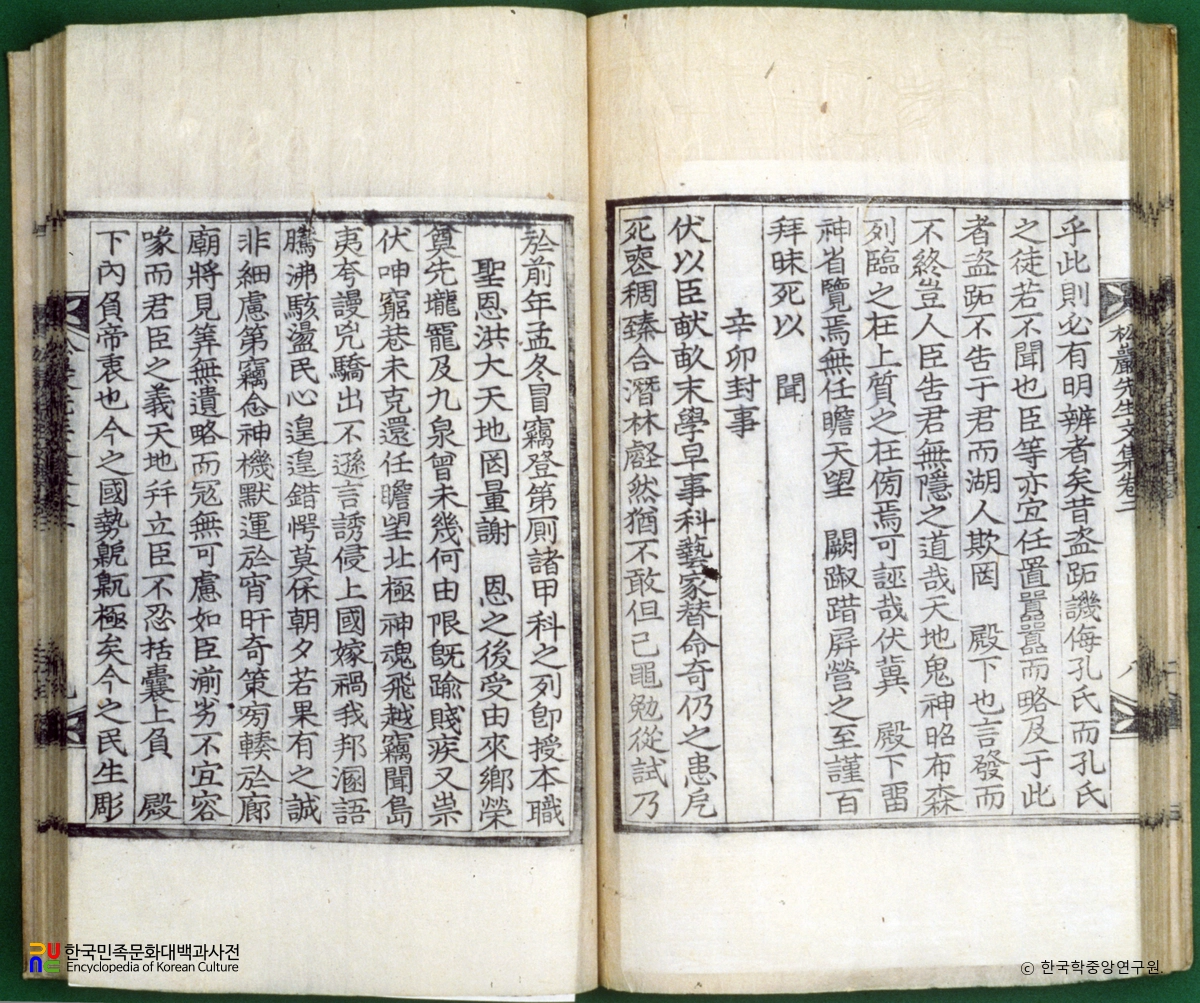 松巖先生文集卷二
八
乎此則必有明辨者矣昔盗跖譏侮孔氏而孔氏
之徒若不聞也臣等亦宜任置囂囂而略及于此
者盗跖不告于君而湖人欺罔　殿下也言發而
不終豈人臣告君無隱之道哉天地鬼神昭布森
列臨之在上質之在傍焉可誣哉伏冀　殿下畱
神省覽焉無任瞻天望　闕踧踖屛營之至謹百
拜昧死以　聞
辛卯封事
伏以臣献畝末學早事科藝家替命奇仍之患戹
死喪稠臻合潛林壑然猶不敢但已黽勉從試乃
於前年孟冬冒竊登第厠諸甲科之列卽授本職
聖恩洪大天地罔量謝　恩之後受由來鄕榮
奠先壠寵及九泉曾未幾何由限旣踰賤疾又祟
伏呻窮巷未克還任瞻望北極神魂飛越竊聞島
夷夸謾兇驕出不遜言誘侵上國嫁禍我邦溷語
騰沸駭盪民心遑遑錯愕莫保朝夕若果有之誠
非細慮第竊念神機默運於宵旰奇策旁輳於廊
廟將見筭無遺略而冦無可慮如臣湔劣不宜容
喙而君臣之義天地幷立臣不忍括囊上負　殿
下內負帝衷也今之國勢臲卼極矣今之民生彫
한국민족문화대백과사전
Encyclopedia of Korean Culture
ⓒ 한국학중앙연구원